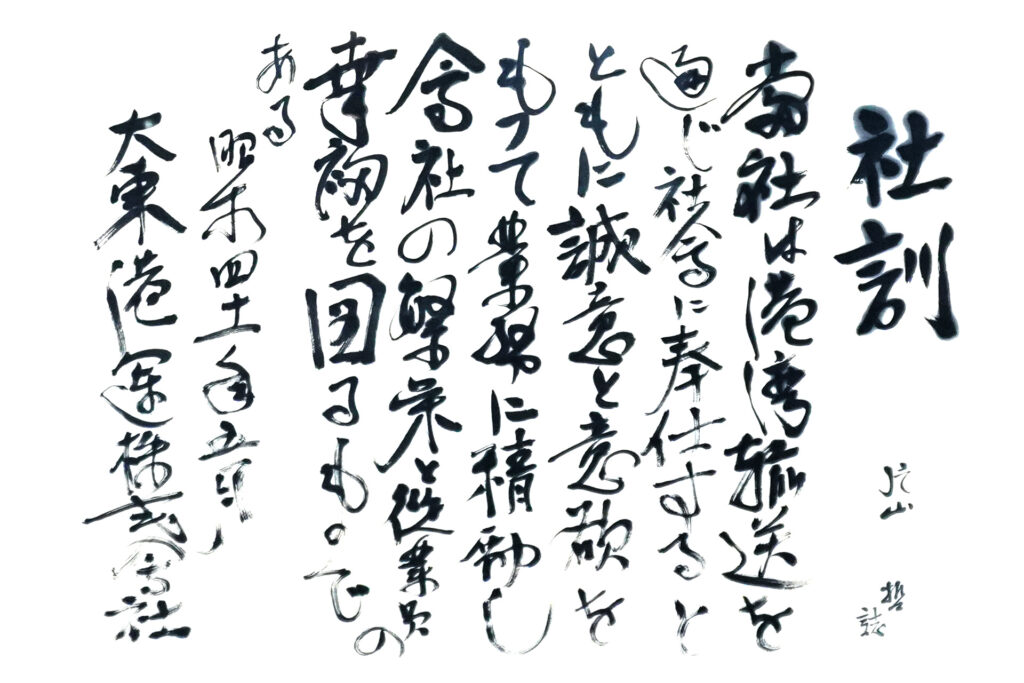 社訓
片山 哲誌
當社は港湾輸送を
通じ社會に奉仕すると
ともに誠意と意欲を
もって業務に精勤し
會社の繁栄と従業員の
幸福を図るもので
ある
昭和四十一年五月
大東港運株式會社